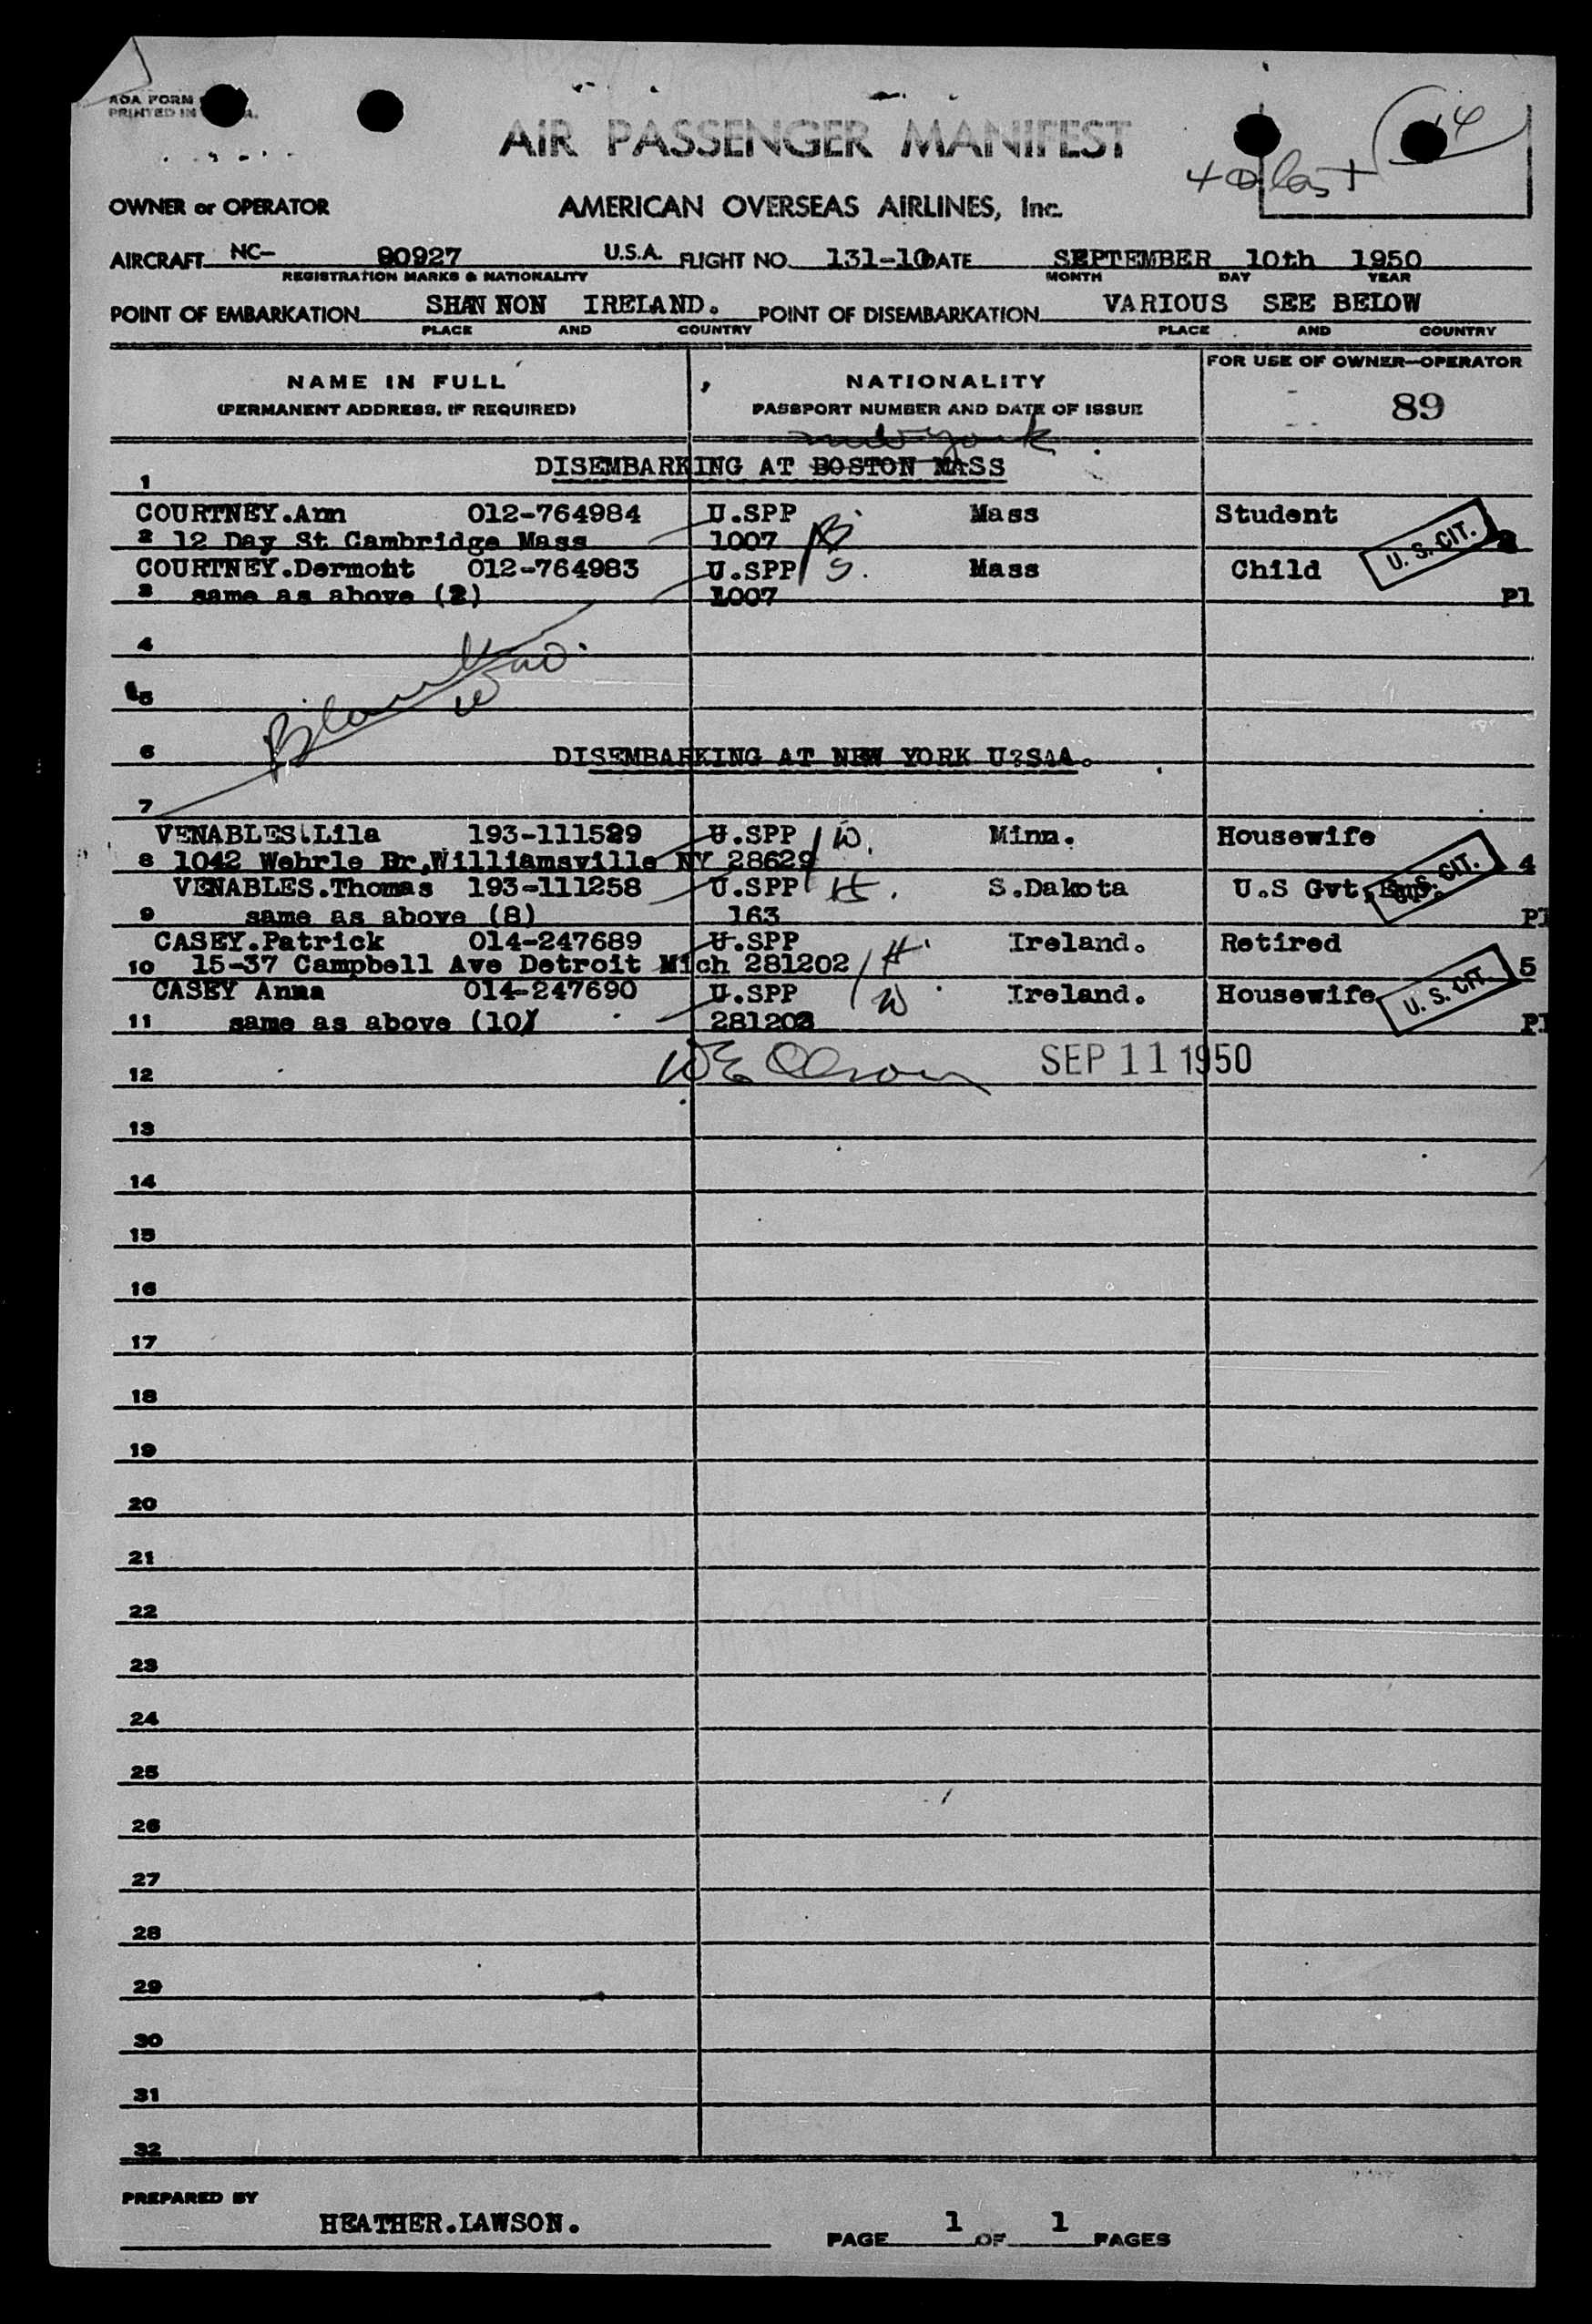 AOA FORM
PRINTED IN
AIR PASSENGER MANIFEST
OWNER or OPERATOR AMERICAN OVERSEAS AIRLINES, Inc.
AIRCRAFT NC- 90927 U.S.A. FLIGHT NO. 131-10 DATE SEPTEMBER 10th 1950
REGISTRATION MARKS & NATIONALITY MONTH DAY YEAR
POINT OF EMBARKATION SHAN NON IRELAND. POINT OF DISEMBARKATION VARIOUS SEE BELOW
PLACE AND COUNTRY PLACE AND COUNTRY
NAME IN FULL NATIONALITY FOR USE OF OWNER—OPERATOR
(PERMANENT ADDRESS, IF REQUIRED) PASSPORT NUMBER AND DATE OF ISSUE 89
new york
1 DISEMBARKING AT BOSTON MASS
COURTNEY.Ann 012-764984 U.SPP Mass Student
2 12 Day St Cambridge Mass 1007 U. S. CIT.
COURTNEY.Dermott 012-764983 U.SPP S. Mass Child
3 same as above (2) 1007 Pl
4
5
6 DISEMBARKING AT NEW YORK U?SAA.
7
VENABLES.Lila 193-111529 U.SPP W. Minn. Housewife
8 1042 Wehrle Dr,Williamsville NY 28629 U. S. CIT. 4
VENABLES.Thomas 193-111258 U.SPP H. S.Dakota U.S Gvt.Emp.
9 same as above (8) 163 Pl
CASEY.Patrick 014-247689 U.SPP H. Ireland. Retired
10 15-37 Campbell Ave Detroit Mich 281202 5
CASEY Anna 014-247690 U.SPP W Ireland. Housewife U. S. CIT.
11 same as above (10) 281203 Pl
12 SEP 11 1950
13
14
15
16
17
18
19
20
21
22
23
24
25
26
27
28
29
30
31
32
PREPARED BY
HEATHER.LAWSON. PAGE 1 OF 1 PAGES